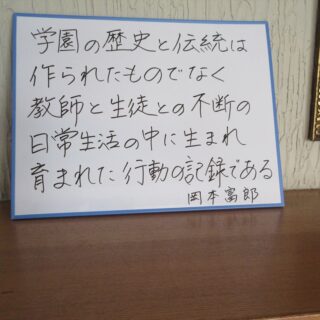 学園の歴史と伝統は
作られたものでなく
教師と生徒との不断の
日常生活の中に生まれ
育まれた行動の記録である
岡本富郎